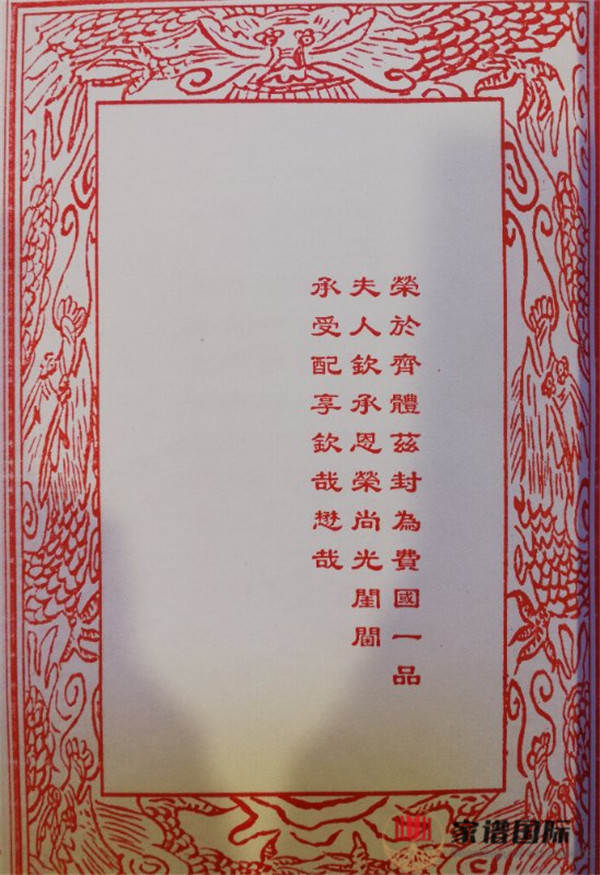 榮於齊體茲封為費國一品
夫人欽承恩榮尚光閨閫
承受配享欽哉懋哉
家谱国际